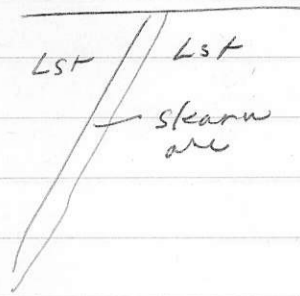 Lst Lst
skarn
ore